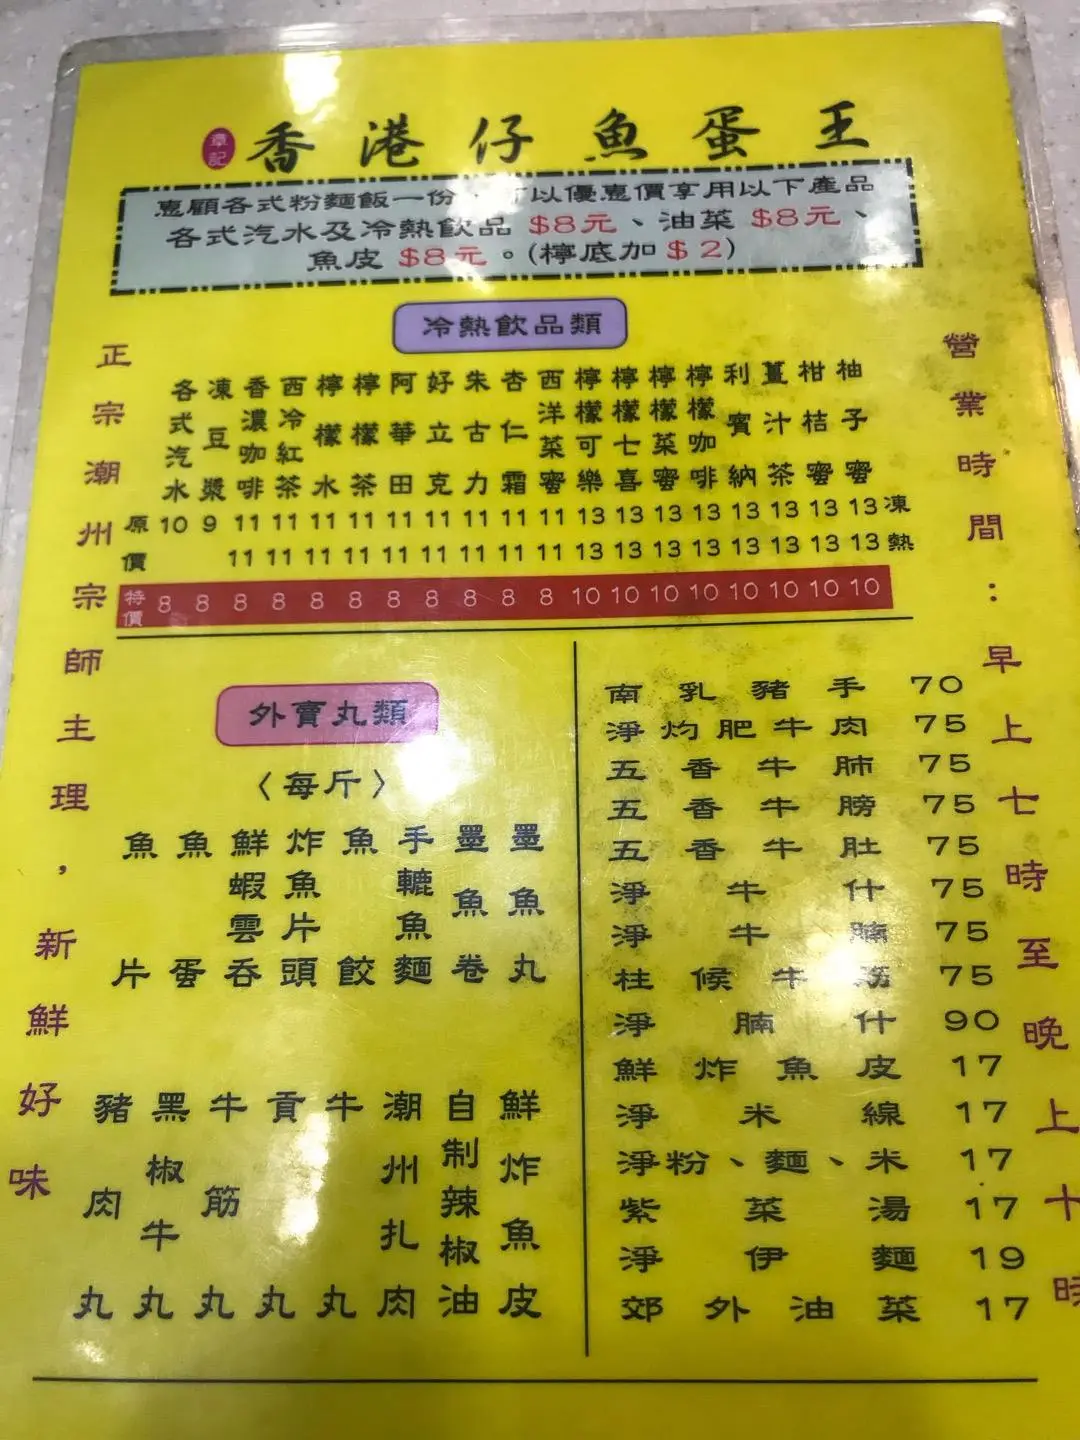 章記
香港仔魚蛋王
惠顧各式粉麵飯一份，可以優惠價享用以下產品
各式汽水及冷熱飲品 $8元、油菜 $8元、
魚皮 $8元。(檸底加 $2)
正宗潮州宗師主理，新鮮好味
營業時間：早上七時至晚上十時
冷熱飲品類
各式汽水
凍豆漿
香濃咖啡
西冷紅茶
檸檬水
檸檬茶
阿華田
好立克
朱古力
杏仁霜
西洋菜蜜
檸檬可樂
檸檬七喜
檸檬菜蜜
檸檬咖啡
利賓納
薑汁茶
柑桔蜜
柚子蜜
原價
10 9 11 11 11 11 11 11 11 11 11 13 13 13 13 13 13 13 13 凍
11 11 11 11 11 11 11 11 11 13 13 13 13 13 13 13 13 熱
特價 8 8 8 8 8 8 8 8 8 8 8 10 10 10 10 10 10 10 10
外賣丸類
〈每斤〉
魚片
魚蛋
鮮蝦雲吞
炸魚片頭
魚餃
手轆魚麵
墨魚卷
墨魚丸
豬肉丸
黑椒牛丸
牛筋丸
貢丸
牛丸
潮州扎肉
自制辣椒油
鮮炸魚皮
南乳豬手 70
淨灼肥牛肉 75
五香牛肺 75
五香牛膀 75
五香牛肚 75
淨牛什 75
淨牛腩 75
柱候牛筋 75
淨腩什 90
鮮炸魚皮 17
淨米線 17
淨粉、麵、米 17
紫菜湯 17
淨伊麵 19
郊外油菜 17